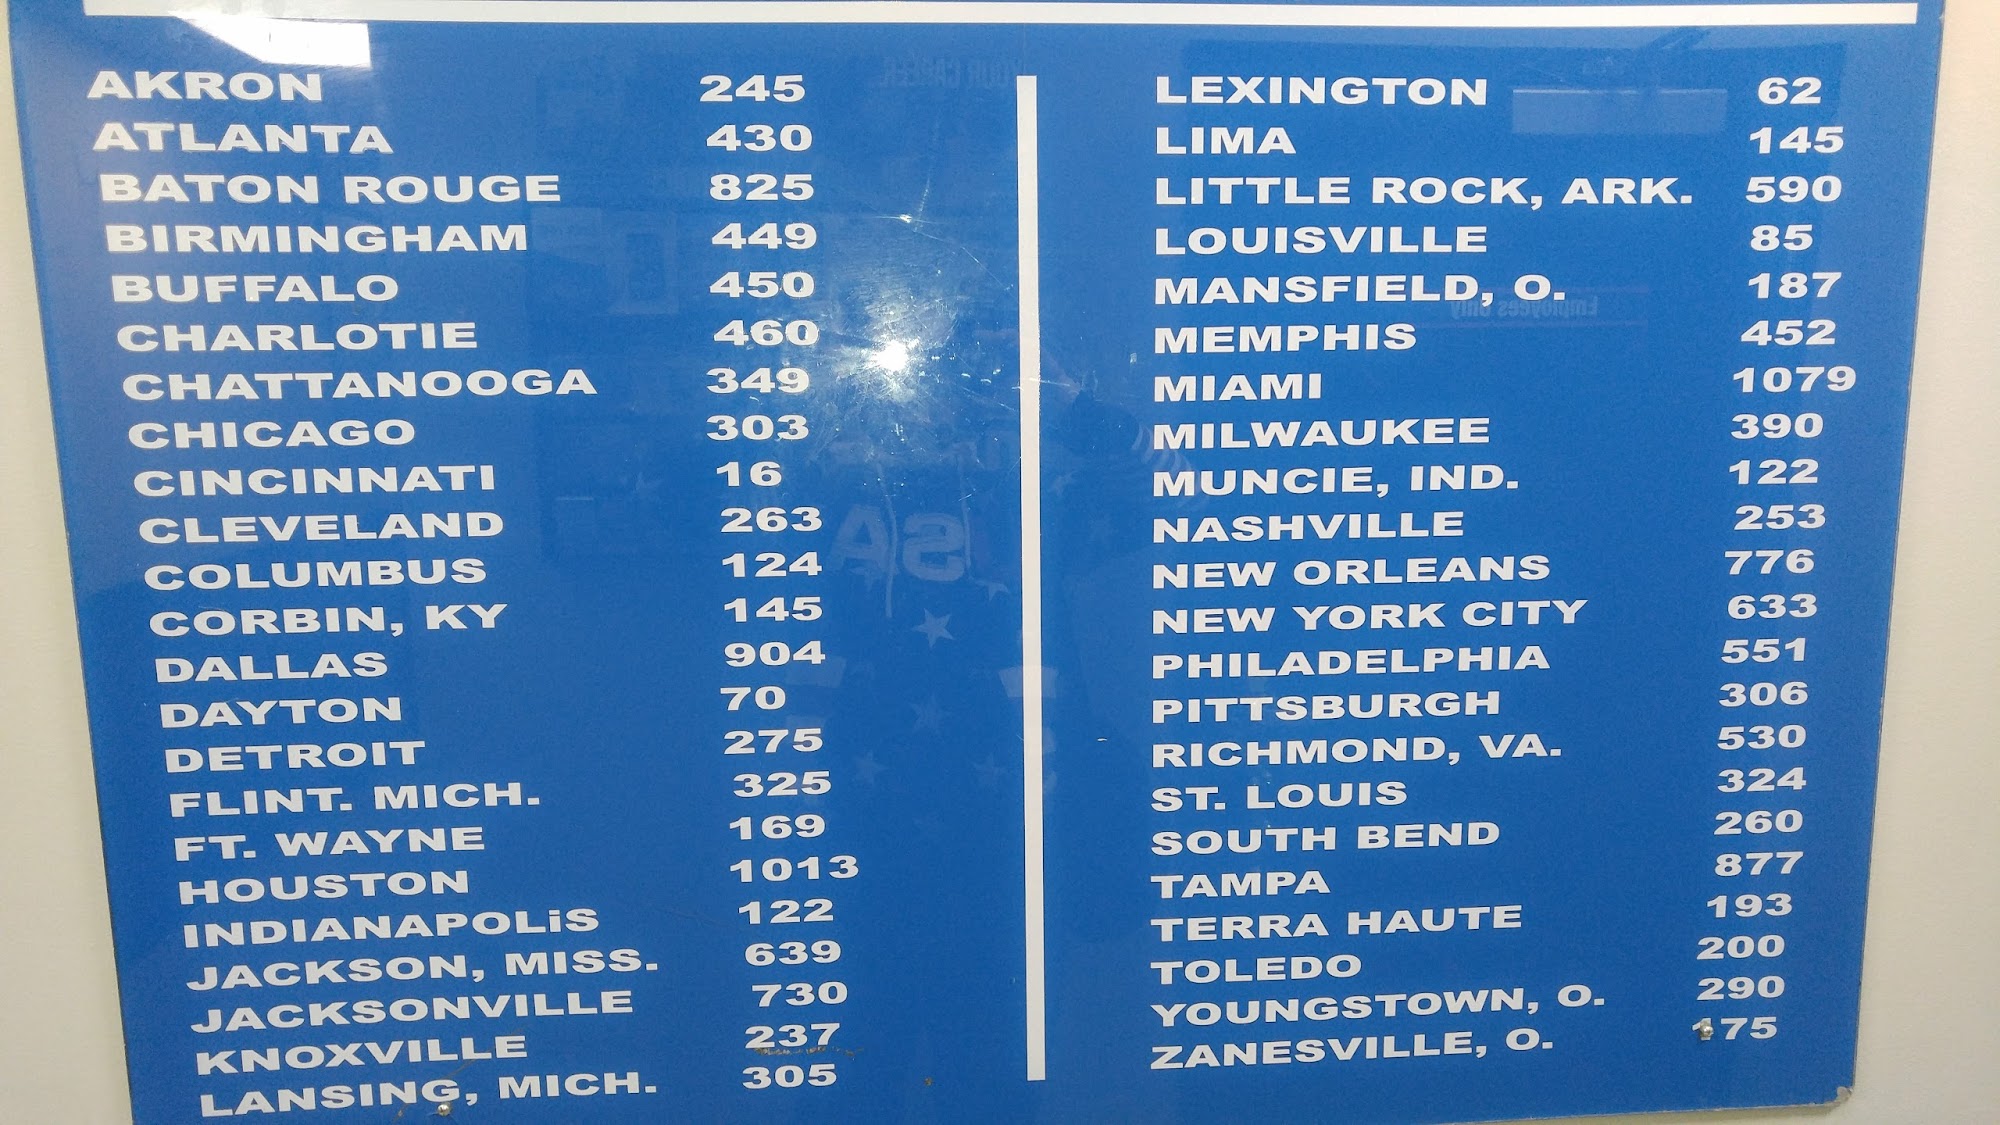 AKRON 245
ATLANTA 430
BATON ROUGE 825
BIRMINGHAM 449
BUFFALO 450
CHARLOTIE 460
CHATTANOOGA 349
CHICAGO 303
CINCINNATI 16
CLEVELAND 263
COLUMBUS 124
CORBIN, KY 145
DALLAS 904
DAYTON 70
DETROIT 275
FLINT. MICH. 325
FT. WAYNE 169
HOUSTON 1013
INDIANAPOLiS 122
JACKSON, MISS. 639
JACKSONVILLE 730
KNOXVILLE 237
LANSING, MICH. 305
LEXINGTON 62
LIMA 145
LITTLE ROCK, ARK. 590
LOUISVILLE 85
MANSFIELD, O. 187
MEMPHIS 452
MIAMI 1079
MILWAUKEE 390
MUNCIE, IND. 122
NASHVILLE 253
NEW ORLEANS 776
NEW YORK CITY 633
PHILADELPHIA 551
PITTSBURGH 306
RICHMOND, VA. 530
ST. LOUIS 324
SOUTH BEND 260
TAMPA 877
TERRA HAUTE 193
TOLEDO 200
YOUNGSTOWN, O. 290
ZANESVILLE, O. 175
YOUR CAREER
Employees Only